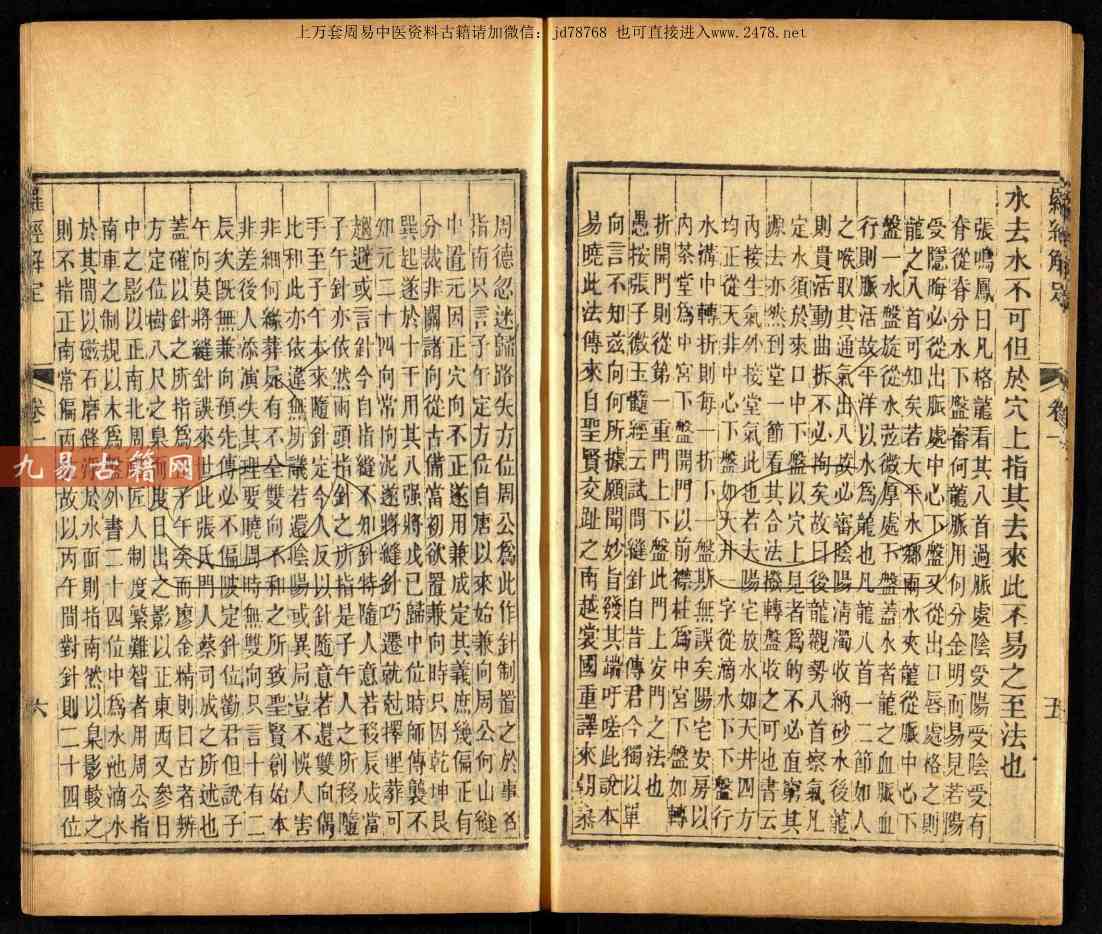 上万套周易中医资料古籍请加微信：jd78768 也可直接进入www.2478.net
羅經解定
卷一
五
水去水不可但於穴上指其去來此不易之至法也
張鳴鳳曰凡格龍看其入首過脈處陰受陽受陰受有
脊從脊分水下盤審何龍脈用何分金明而易見若陽
受隱晦必從出脈處中心下盤又從出口唇處格之則
龍之入首可知矣若大平水鄉兩水夾龍從脈中心下
盤一水盤旋從水莶微厚處下盤蓋水者龍之血脈血
行則脈活故平洋以水為龍也凡龍入首一二節如人
之喉取其通氣出入故必審陰陽清濁收納砂水後龍
則貴活動曲折不必拘矣故曰後龍觀勢入首察氣凡
定水須於來口中下盤以穴上見者為的不必直窮其
源去亦然到堂一節看其合法撥轉盤收之可也書云
內接生氣外接堂氣此也若夫陽宅放水如天井四方
均正從天井中心下盤如天井一字從滴水下下盤行
水溝中轉折則每一折下一盤斯無誤矣陽宅安房以
內茶堂為中宮下盤開門以前襟柱為中宮下盤如轉
折開門則從第一重門上下盤此門上安門之法也
愚按張子微玉髓經云試問縫針自昔傳君今獨以單
向言不知茲向何所據願聞妙旨發其端吁嗟此說本
易曉此法傳來自聖賢交趾之南越裳國重譯來朝忝
周德忽迷歸路失方位周公為此作針制置之於事各
指南只言子午定方位自唐以來始兼向周公何山縫
中置元因正穴向不正遂用兼成定其義庶幾偏正有
分裁非關諸向從古備當初欲置兼向時只因乾坤艮
巽起遂於十干用其八强將戊已歸中位時師傳襲不
知元二十四向常向泥遂將縫針巧遷就尅擇埋葬可
趨避或言針今自指縫不如針特隨人意若移辰成當
子午針亦依然兩頭指針之所指是子午人之所移隨
于至子午本來隨針定今人反以針隨意若還雙向偶
比和此亦依違無所議若還陰陽或異局豈不悞人害
非細何緣葬屍有不全要曉周時無雙向只言十有二
非差後人添演失其理雙下不和之所致聖賢創始本
辰次旣無兼向預先傳必不偏陂定針位勸君但說子
午向莫將縫針誤來世此張氏門人蔡司成之所述也
蓋確以針之所指為子午矣而廖金精則曰古者辨
方定位樹八尺之臬而度日出之影以正東西又參日
中之影以正南北周官匠人制度繁難智者用周公指
南車之制規以木為盤外書二十四位中為水池滴水
於其間以磁石磨鋒浮於水面則指南然以臬影較之
則不指正南常偏丙位故以丙午間對針則二十四位
羅經解定
卷一
六
九易古籍网